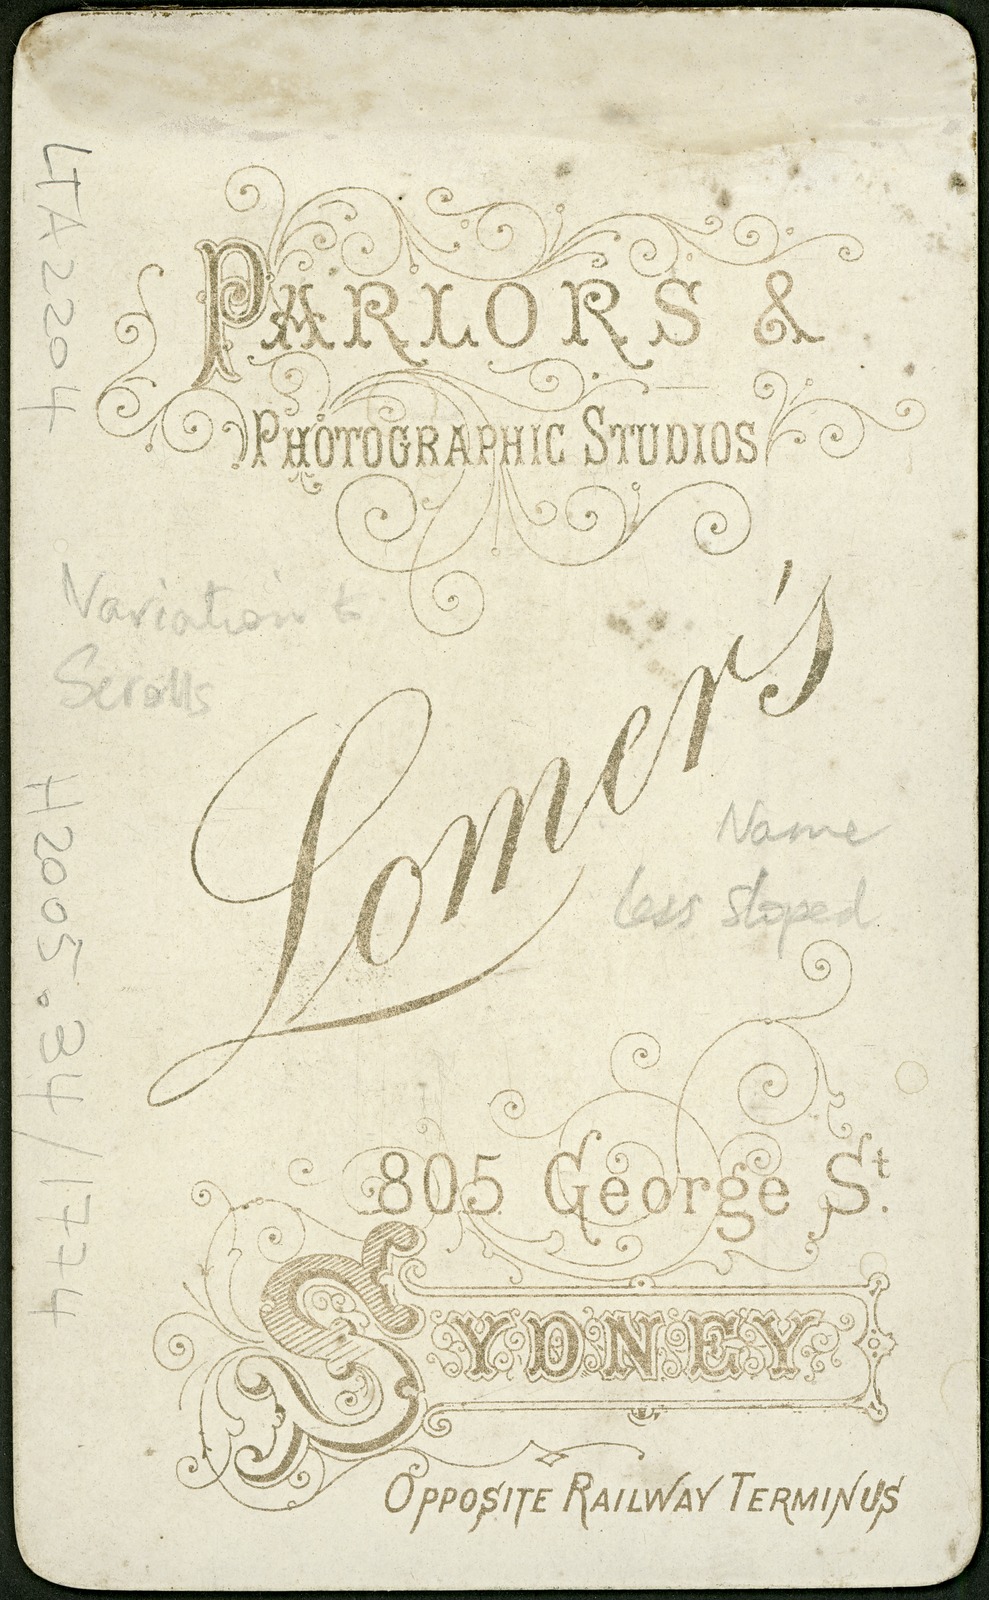 PARLORS &
PHOTOGRAPHIC STUDIOS
Variation to
Scrolls
Lomer's
Name
less sloped
805 George St.
SYDNEY
OPPOSITE RAILWAY TERMINUS
LTA 2204
H2005.34/1774